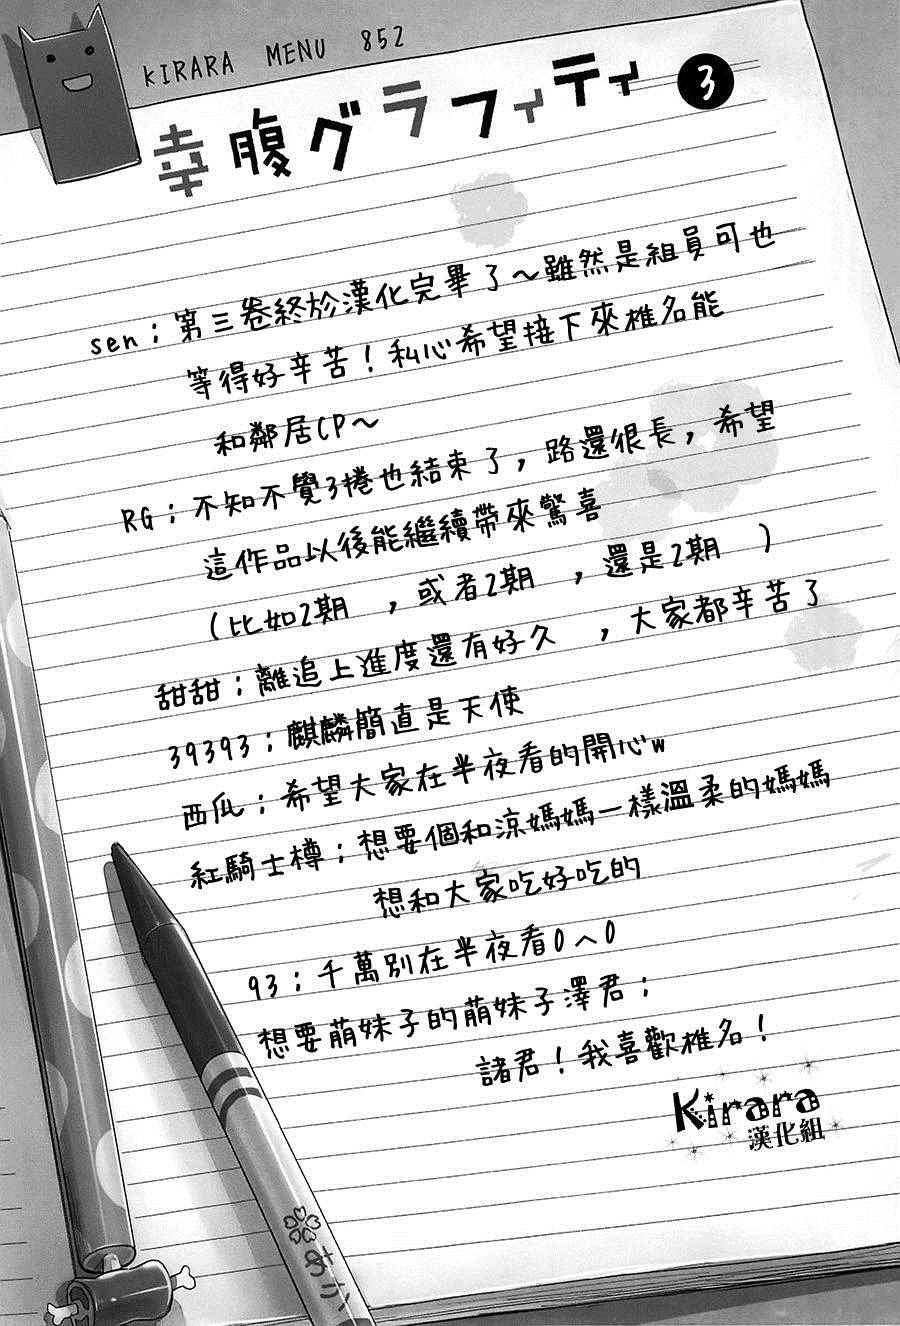 KIRARA MENU 852
幸腹グラフィティ 3
sen：第三卷終於漢化完畢了～雖然是組員可也
等得好辛苦！私心希望接下來椎名能
和鄰居CP～
RG：不知不覺3捲也結束了，路還很長，希望
這作品以後能繼續帶來驚喜
（比如2期 ，或者2期 ，還是2期 ）
甜甜：離追上進度還有好久 ，大家都辛苦了
39393：麒麟簡直是天使
西瓜：希望大家在半夜看的開心w
紅騎士樽：想要個和涼媽媽一樣溫柔的媽媽
想和大家吃好吃的
93：千萬別在半夜看0へ0
想要萌妹子的萌妹子澤君：
諸君！我喜歡椎名！
Kirara
漢化組